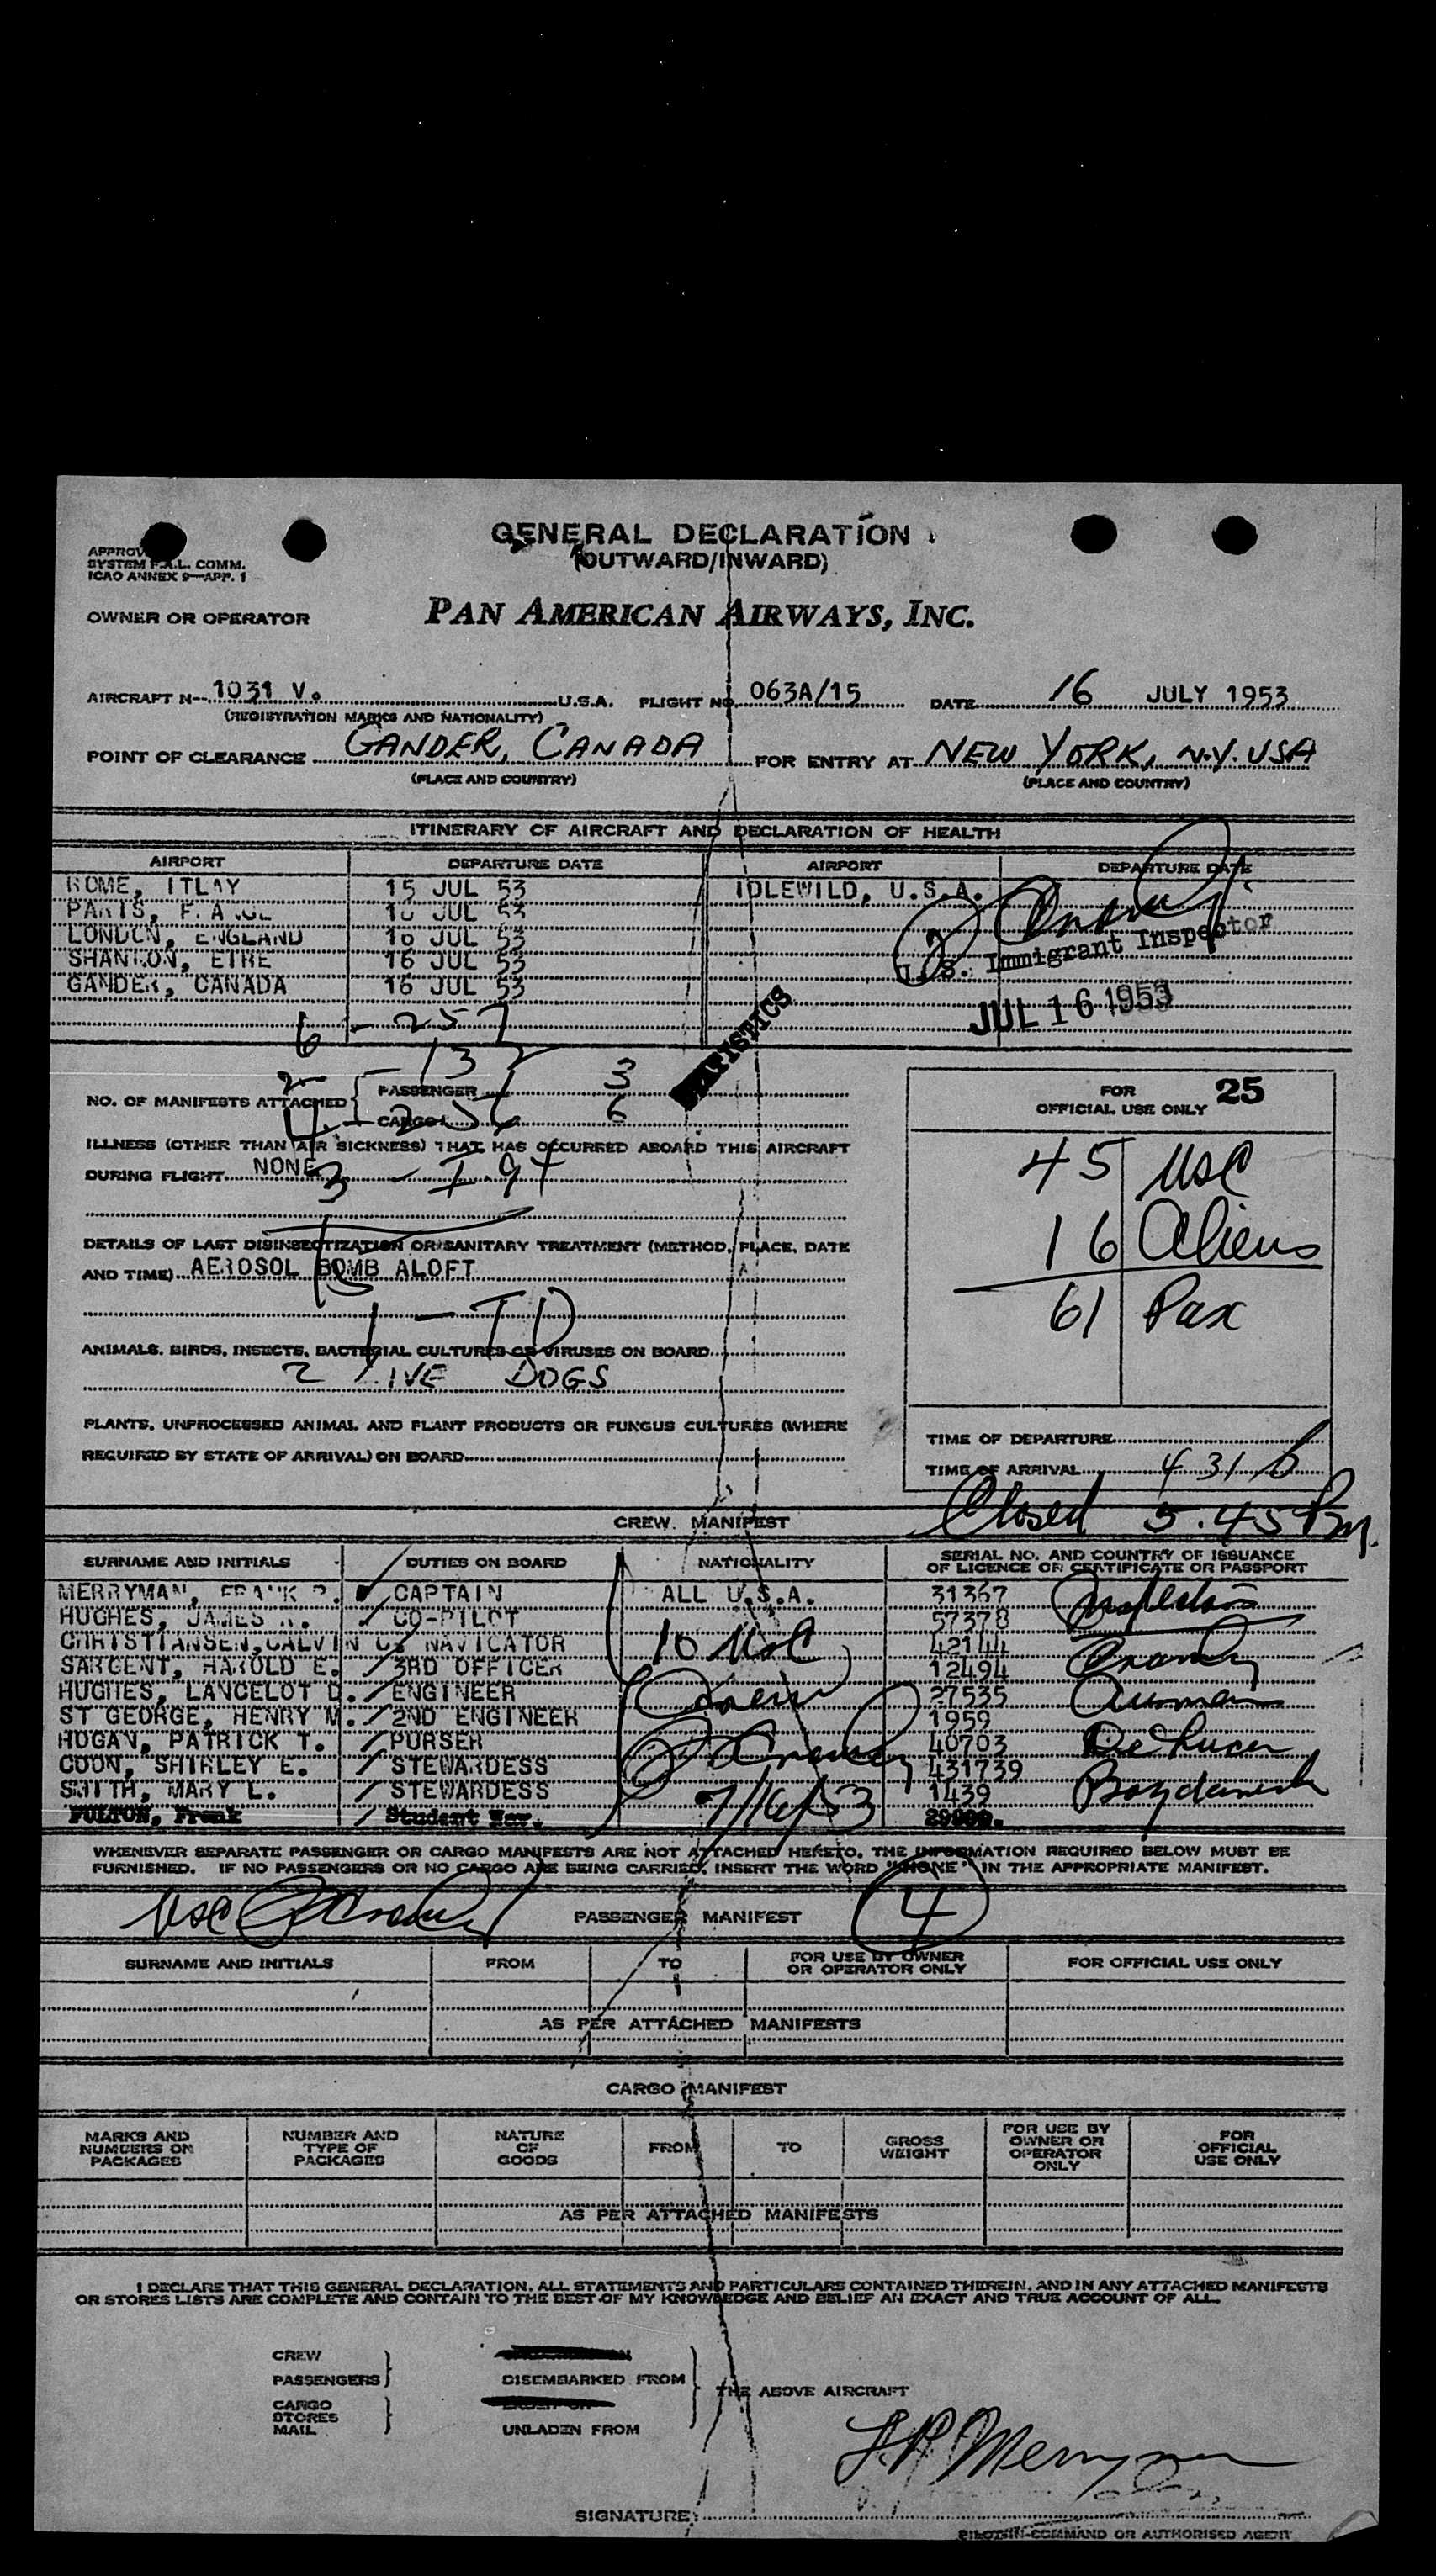 GENERAL DECLARATION
(OUTWARD/INWARD)
SYSTEM F.A.L. COMM.
ICAO ANNEX 9—APP. 1
OWNER OR OPERATOR PAN AMERICAN AIRWAYS, INC.
AIRCRAFT N-- 1031 V. U.S.A. FLIGHT NO. 063A/15 DATE 16 JULY 1953
(REGISTRATION MARKS AND NATIONALITY)
POINT OF CLEARANCE GANDER, CANADA FOR ENTRY AT NEW YORK, N.Y. USA
(PLACE AND COUNTRY) (PLACE AND COUNTRY)
ITINERARY OF AIRCRAFT AND DECLARATION OF HEALTH
AIRPORT DEPARTURE DATE AIRPORT DEPARTURE DATE
ROME, ITLAY 15 JUL 53 IDLEWILD, U.S.A.
PARIS, 53
LONDON, ENGLAND 16 JUL 53
SHANNON, EIRE 16 JUL 53
GANDER, CANADA 16 JUL 53
U.S. Immigrant Inspector
JUL 16 1953
6 - 257
NO. OF MANIFESTS ATTACHED PASSENGER 3
CARGO 6
FOR OFFICIAL USE ONLY 25
45 USC
16 Aliens
61 Pax
ILLNESS (OTHER THAN AIR SICKNESS) THAT HAS OCCURRED ABOARD THIS AIRCRAFT
DURING FLIGHT NONE
3 - I.94
DETAILS OF LAST DISINSECTIZATION OR SANITARY TREATMENT (METHOD, PLACE, DATE
AND TIME) AEROSOL BOMB ALOFT
1 - TD
ANIMALS, BIRDS, INSECTS, BACTERIAL CULTURES OR VIRUSES ON BOARD
2 LIVE DOGS
PLANTS, UNPROCESSED ANIMAL AND PLANT PRODUCTS OR FUNGUS CULTURES (WHERE
REQUIRED BY STATE OF ARRIVAL) ON BOARD
TIME OF DEPARTURE
TIME OF ARRIVAL 4 31 P
Closed 5.45 Pm.
CREW MANIFEST
SURNAME AND INITIALS DUTIES ON BOARD NATIONALITY SERIAL NO. AND COUNTRY OF ISSUANCE
OF LICENCE OR CERTIFICATE OR PASSPORT
MERRYMAN, FRANK P. CAPTAIN ALL U.S.A. 31367
HUGHES, JAMES CO-PILOT 57378
CHRISTIANSEN, CALVIN C. NAVIGATOR 10 USC 42144
SARGENT, HAROLD E. 3RD OFFICER 12494
HUGHES, LANCELOT D. ENGINEER 27535
ST GEORGE, HENRY M. 2ND ENGINEER 1959
HOGAN, PATRICK T. PURSER 40703
COON, SHIRLEY E. STEWARDESS 431739
SMITH, MARY L. STEWARDESS 7/16/53 1439
FULTON, Frank Student Nav.
WHENEVER SEPARATE PASSENGER OR CARGO MANIFESTS ARE NOT ATTACHED HERETO, THE INFORMATION REQUIRED BELOW MUST BE
FURNISHED. IF NO PASSENGERS OR NO CARGO ARE BEING CARRIED, INSERT THE WORD "NONE" IN THE APPROPRIATE MANIFEST.
USC PASSENGER MANIFEST 4
SURNAME AND INITIALS FROM TO FOR USE BY OWNER OR OPERATOR ONLY FOR OFFICIAL USE ONLY
AS PER ATTACHED MANIFESTS
CARGO MANIFEST
MARKS AND NUMBERS ON PACKAGES NUMBER AND TYPE OF PACKAGES NATURE OF GOODS FROM TO GROSS WEIGHT FOR USE BY OWNER OR OPERATOR ONLY FOR OFFICIAL USE ONLY
AS PER ATTACHED MANIFESTS
I DECLARE THAT THIS GENERAL DECLARATION, ALL STATEMENTS AND PARTICULARS CONTAINED THEREIN, AND IN ANY ATTACHED MANIFESTS
OR STORES LISTS ARE COMPLETE AND CONTAIN TO THE BEST OF MY KNOWLEDGE AND BELIEF AN EXACT AND TRUE ACCOUNT OF ALL.
CREW
PASSENGERS DISEMBARKED FROM
THE ABOVE AIRCRAFT
CARGO
STORES
MAIL UNLADEN FROM
F.P. Merryman
SIGNATURE:
PILOT-IN-COMMAND OR AUTHORISED AGENT